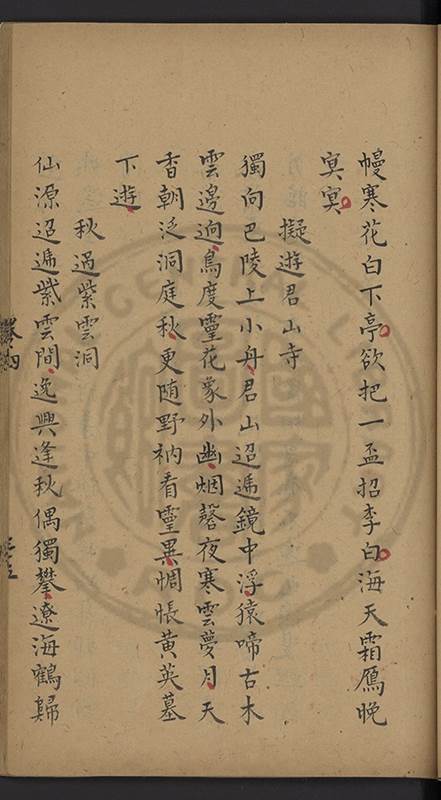 幔寒花白下亭欲把一盃招李白海天霜鴈晚
㝠㝠
擬遊君山寺
獨向巴陵上小舟君山迢遞鏡中浮猿啼古木
雲邊逈鳥度靈花象外幽烟磬夜寒雲夢月天
香朝泛洞庭秋更随野衲看靈異惆悵黄英墓
下遊
秋過紫雲洞
仙源迢遞紫雲間逸興逢秋偶獨攀遼海鶴歸